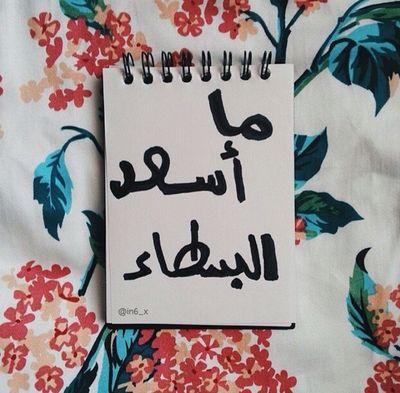 ما
أسعد
البسطاء
@in6_x